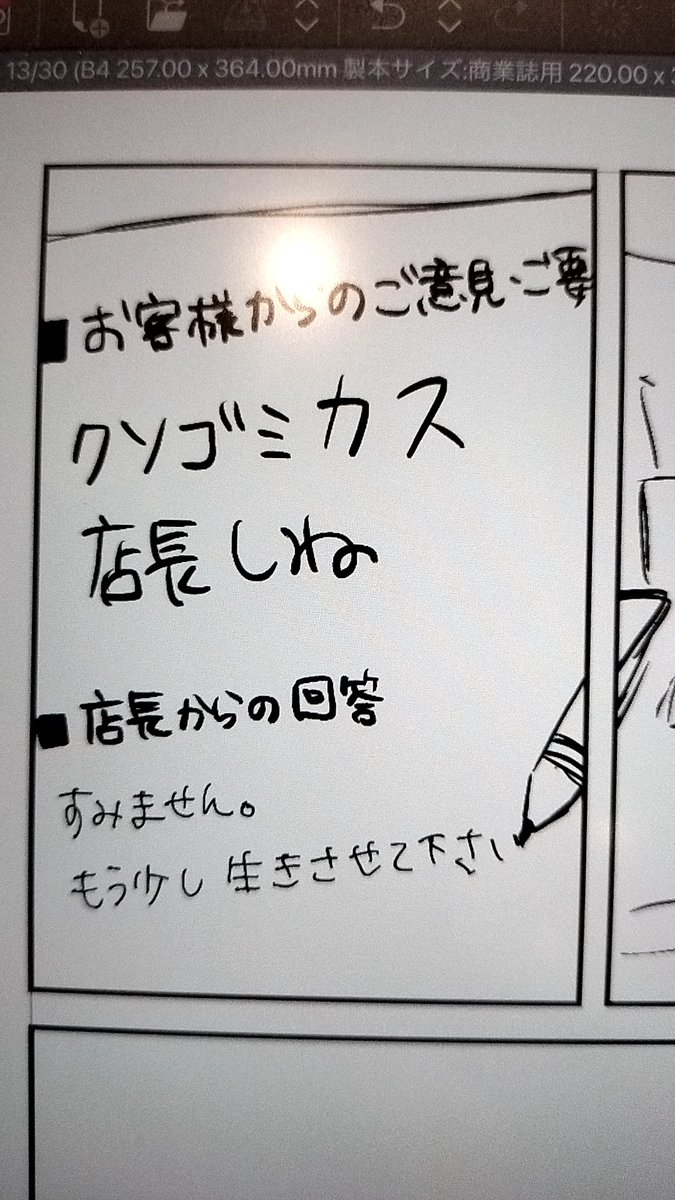 13/30 (B4 257.00 x 364.00mm 製本サイズ:商業誌用 220.00 x
■お客様からのご意見・ご要
クソゴミカス
店長しね
■店長からの回答
すみません。
もう少し生きさせて下さい